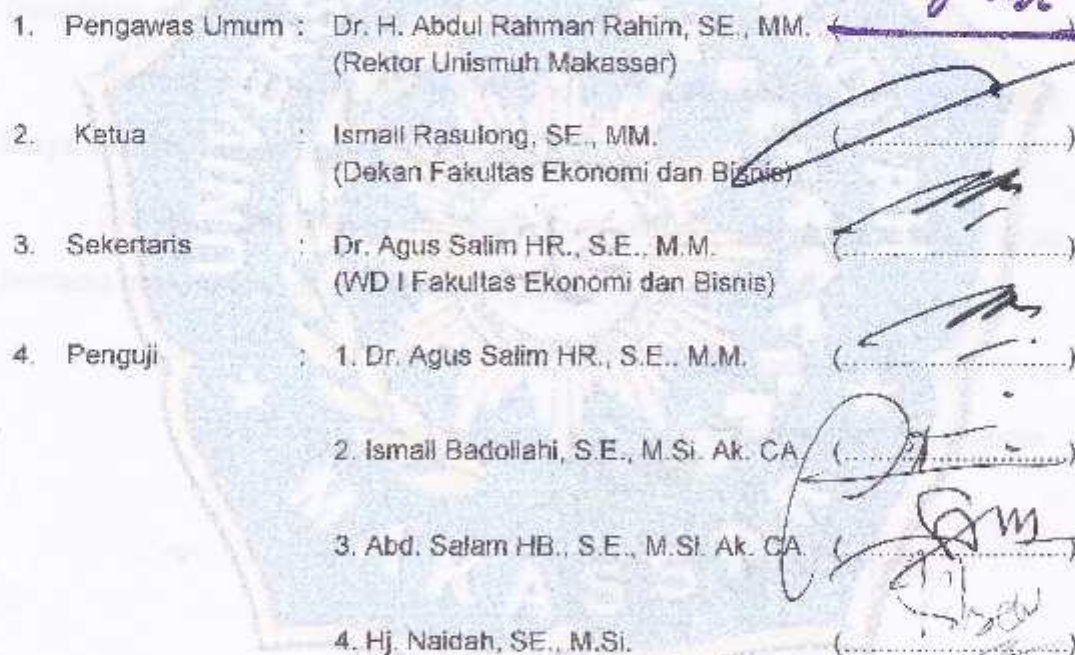 1. Pengawas Umum : Dr. H. Abdul Rahman Rahim, SE., MM. (
(Rektor Unismuh Makassar)
2. Ketua : Ismail Rasulong, SE., MM. (........................)
(Dekan Fakultas Ekonomi dan Bisnis)
3. Sekertaris : Dr. Agus Salim HR., S.E., M.M. (........................)
(WD I Fakultas Ekonomi dan Bisnis)
4. Penguji : 1. Dr. Agus Salim HR., S.E., M.M. (........................)
2. Ismail Badollahi, S.E., M.Si. Ak. CA (........................)
3. Abd. Salam HB., S.E., M.Si. Ak. CA (........................)
4. Hj. Naidah, SE., M.Si. (........................)